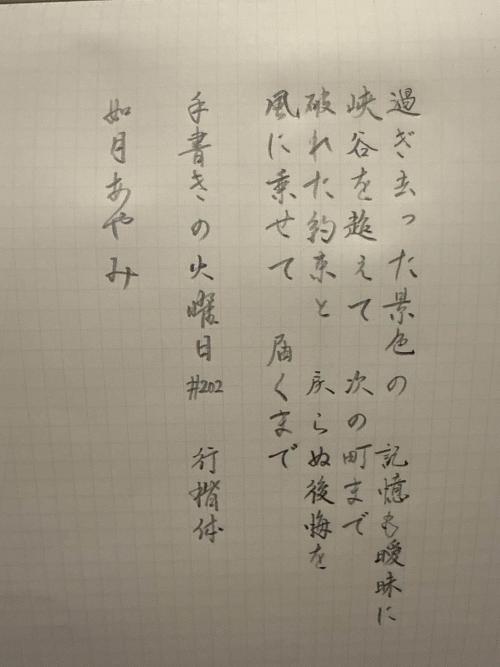 過ぎ去った景色の 記憶も曖昧に
峡谷を超えて 次の町まで
破れた約束と 戻らぬ後悔を
風に乗せて 届くまで
手書きの火曜日#202 行楷体
如月あやみ